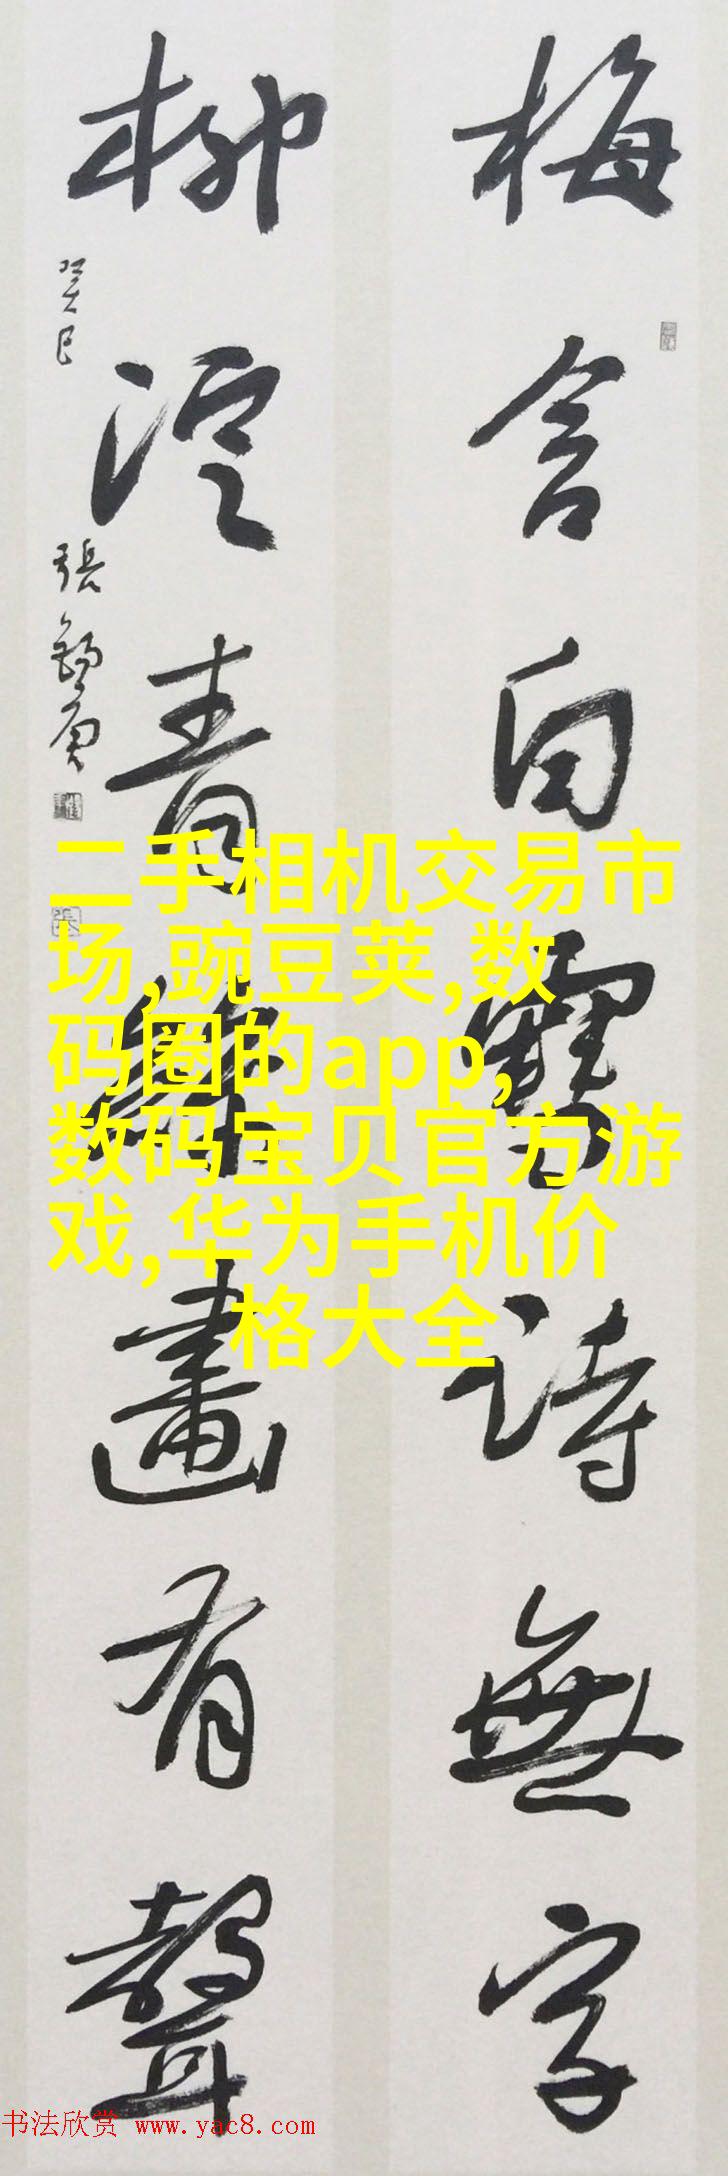 梅含白雪詩無字
柳浥青絲畫有聲
癸巳
張錫庚
二手相机交易市
场,豌豆荚,数
码圈的app,
数码宝贝官方游
戏,华为手机价
格大全
书法欣赏 www.yac8.com